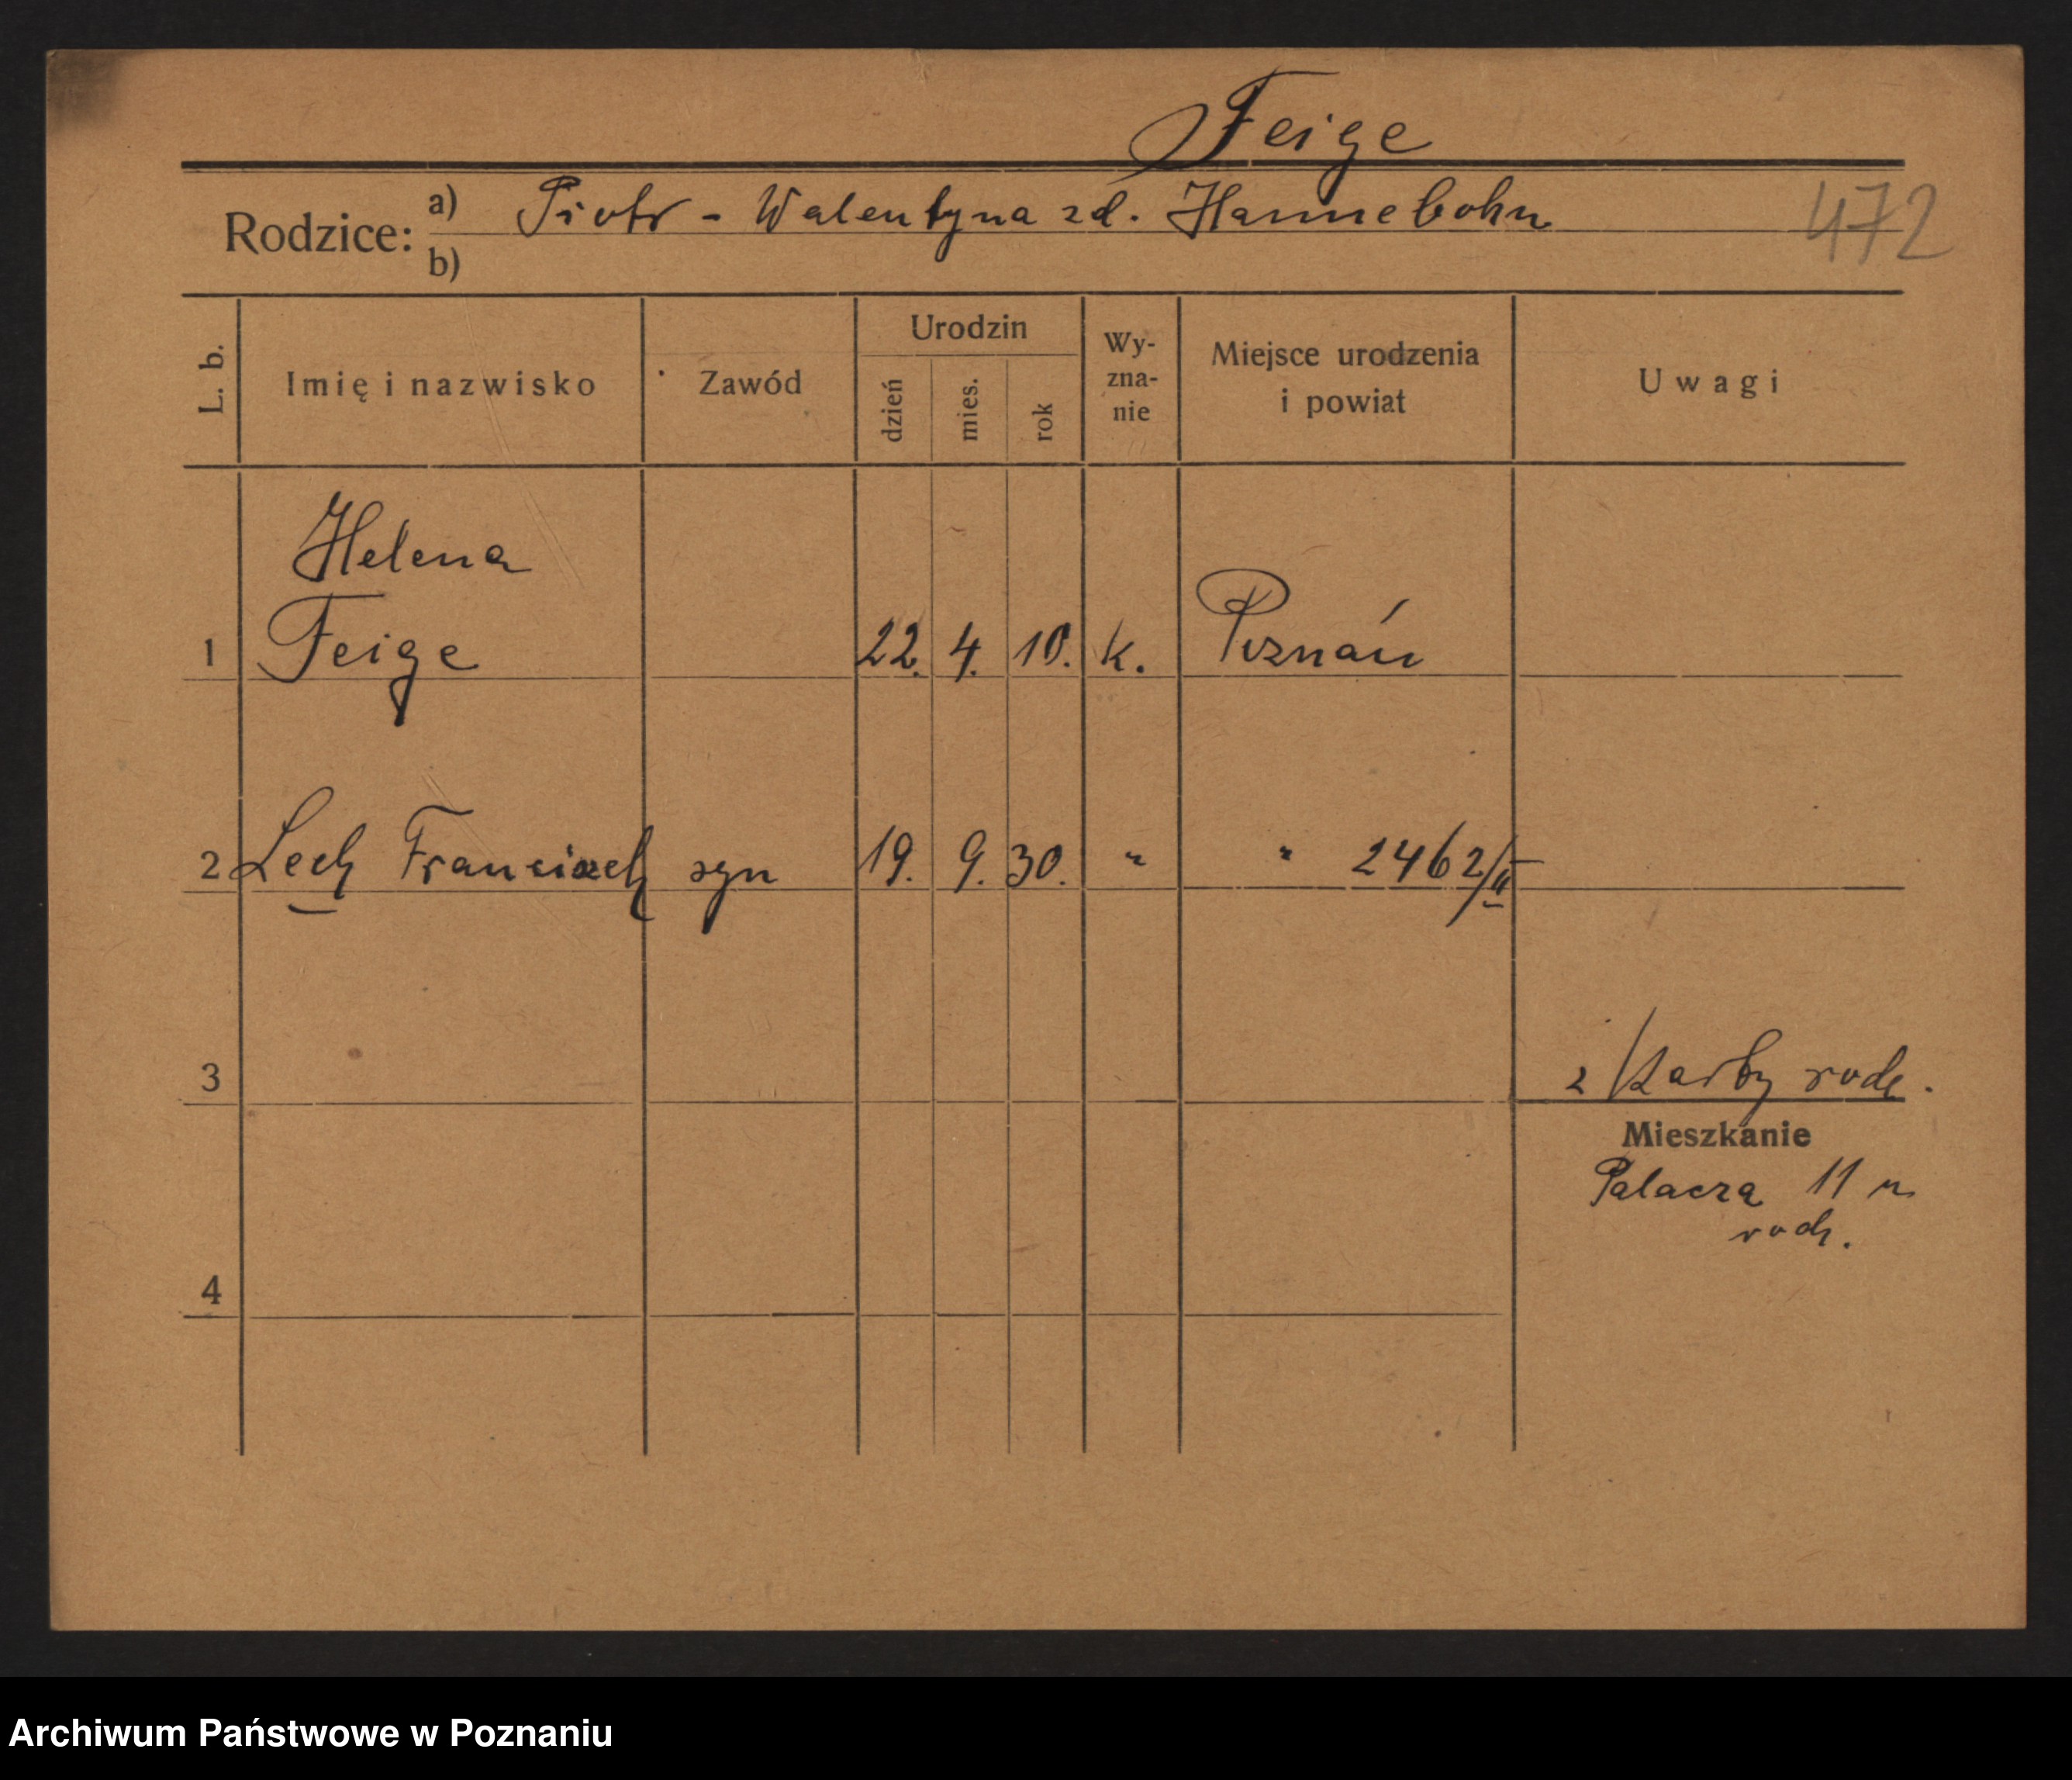 Feige
Rodzice: a) Piotr - Walentyna zd. Hannebohn
b)
472
L. b. Imię i nazwisko Zawód Urodzin dzień mies. rok Wy-zna-nie Miejsce urodzenia i powiat Uwagi
Helena
1 Feige 22. 4. 10. k. Poznań
2 Lech Franciszek syn 19. 9. 30. " " 2462/II
3 z karty rodz.
Mieszkanie
Palacza 11 u
rodz.
4
Archiwum Państwowe w Poznaniu